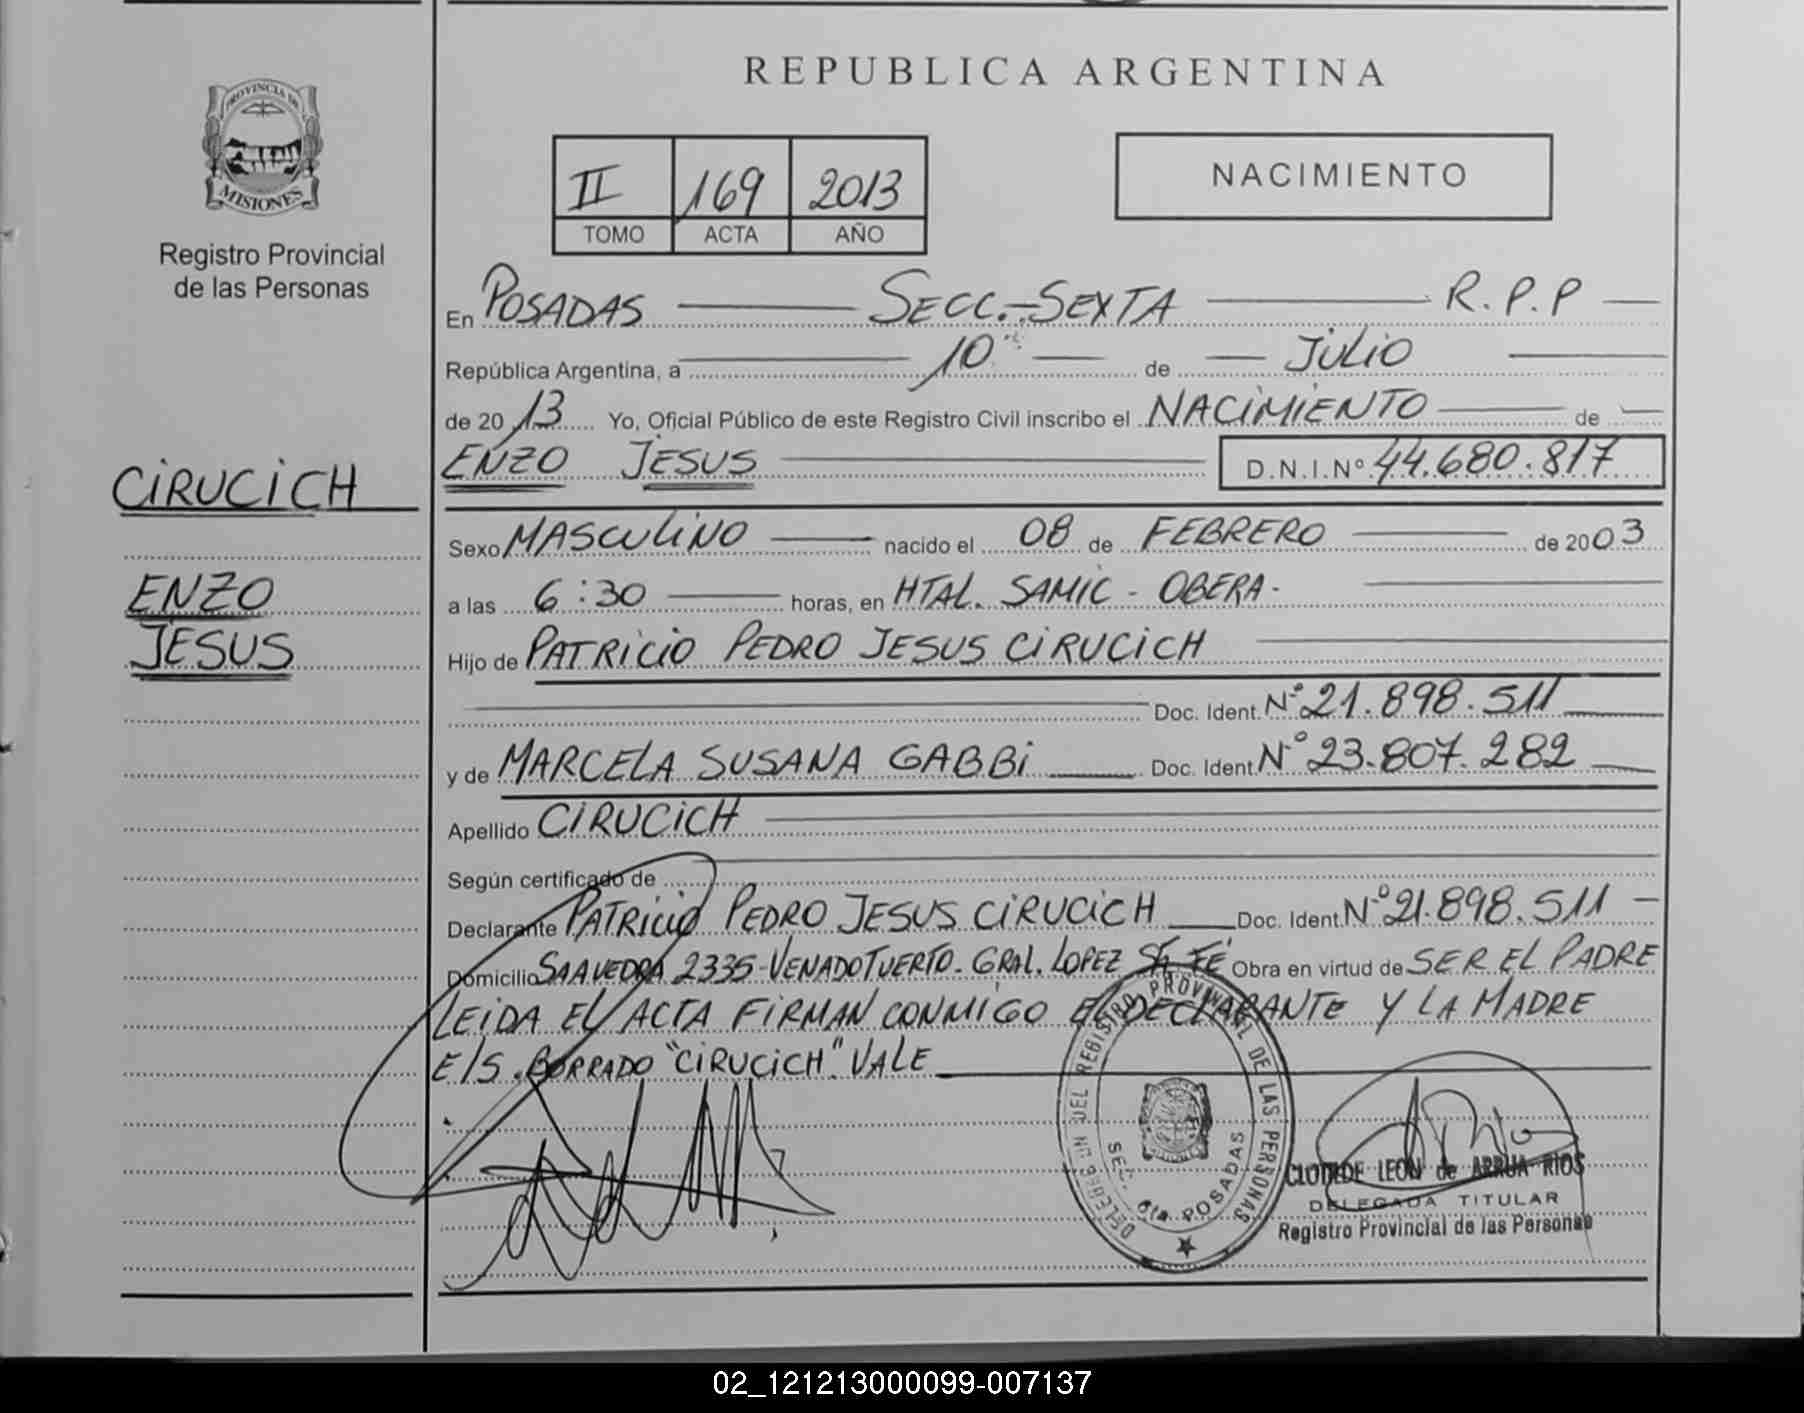 REPUBLICA ARGENTINA
PROVINCIA DE
MISIONES
Registro Provincial
de las Personas
II 169 2013
TOMO ACTA AÑO
NACIMIENTO
En POSADAS SECC. SEXTA R.P.P
República Argentina, a 10 de JULIO
de 2013 Yo, Oficial Público de este Registro Civil inscribo el NACIMIENTO de
ENZO JESUS D.N.I.Nº 44.680.817
CIRUCICH
ENZO
JESUS
Sexo MASCULINO nacido el 08 de FEBRERO de 2003
a las 6:30 horas, en HTAL. SAMIC - OBERA-
Hijo de PATRICIO PEDRO JESUS CIRUCICH
Doc. Ident. Nº 21.898.511
y de MARCELA SUSANA GABBI Doc. Ident. Nº 23.807.282
Apellido CIRUCICH
Según certificado de
Declarante PATRICIO PEDRO JESUS CIRUCICH Doc. Ident. Nº 21.898.511
Domicilio SAAVEDRA 2335-VENADO TUERTO- GRAL. LOPEZ STA FÉ Obra en virtud de SER EL PADRE
LEIDA EL ACTA FIRMAN CONMIGO EL DECLARANTE Y LA MADRE
E/S. BORRADO "CIRUCICH" VALE
DEL REGISTRO PROVINCIAL DE LAS PERSONAS
SEC. 6ta POSADAS
CLOTILDE LEON de ARRUA RIOS
DELEGADA TITULAR
Registro Provincial de las Personas
02_121213000099-007137